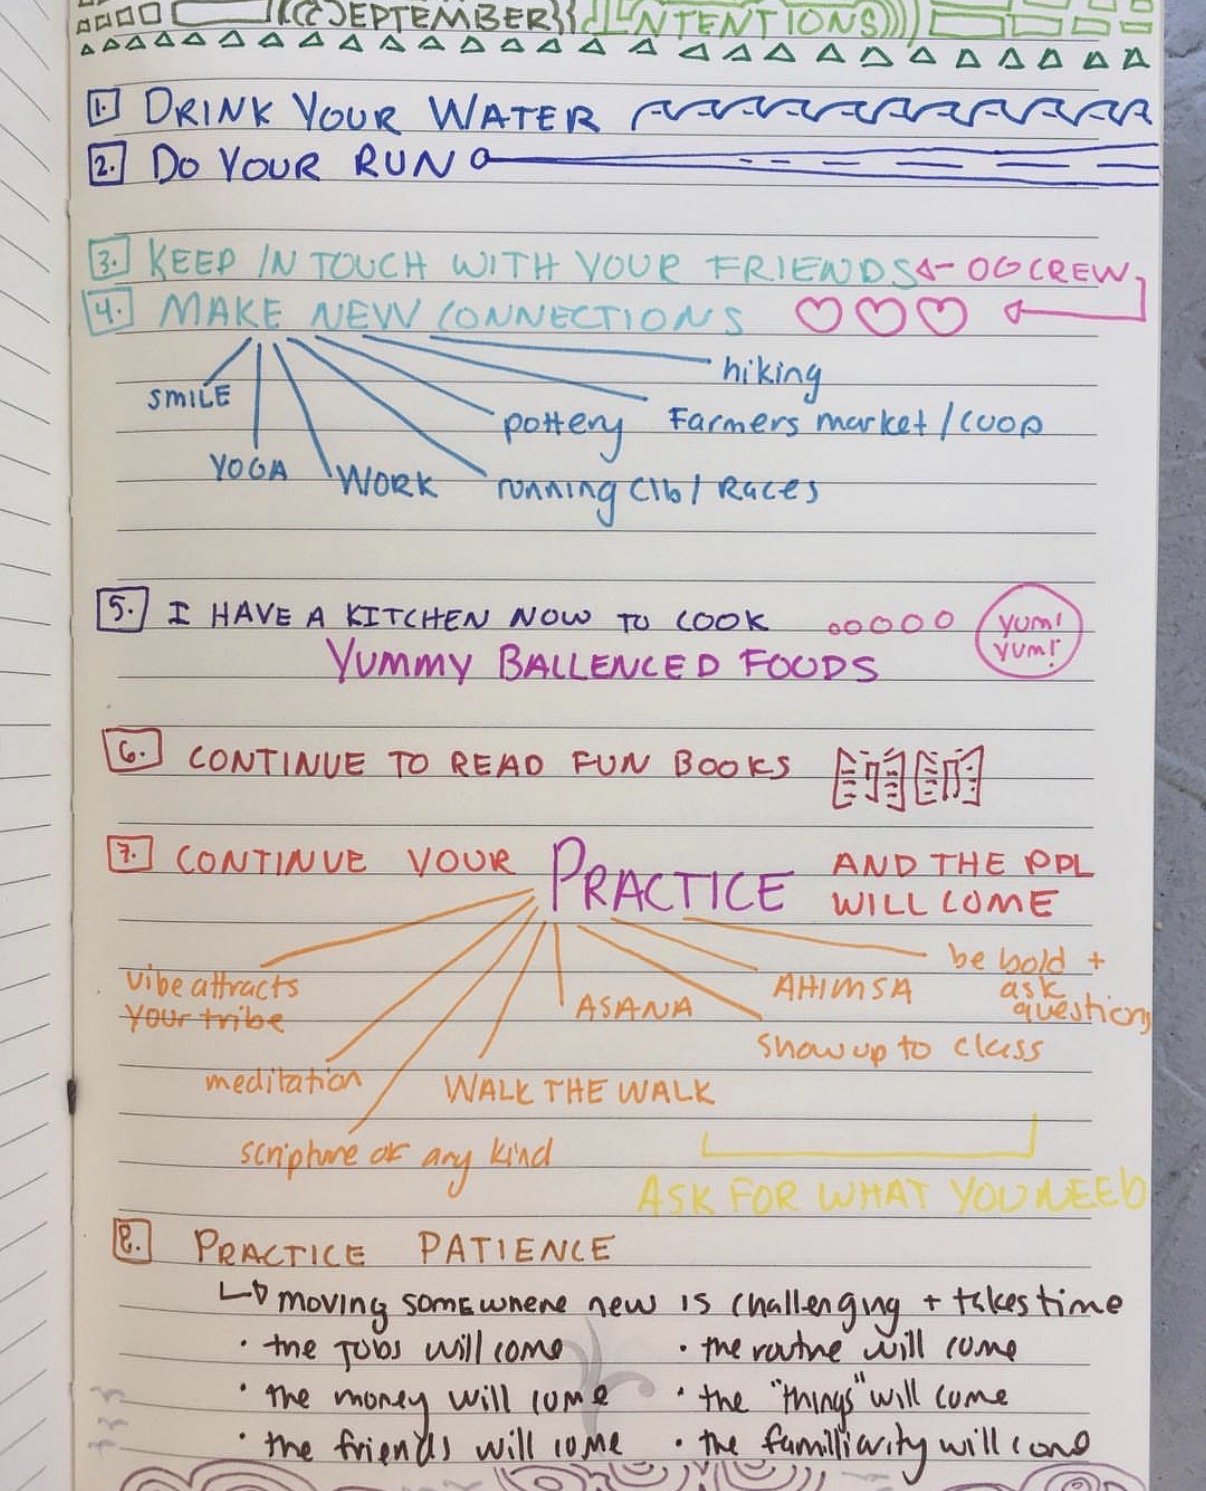 SEPTEMBER INTENTIONS
1. DRINK YOUR WATER
2. DO YOUR RUN
3. KEEP IN TOUCH WITH YOUR FRIENDS ← OG CREW
4. MAKE NEW CONNECTIONS
hiking
SMILE
pottery Farmers market / COOP
YOGA WORK running Clb / Races
5. I HAVE A KITCHEN NOW TO COOK yum!
YUMMY BALLENCED FOODS yum!
6. CONTINUE TO READ FUN BOOKS
7. CONTINUE YOUR PRACTICE AND THE PPL
WILL COME
be bold +
vibe attracts AHIMSA ask
your tribe ASANA questions
show up to class
meditation WALK THE WALK
scripture of any kind
ASK FOR WHAT YOU NEED
8. PRACTICE PATIENCE
↳ moving somewhere new is challenging + takes time
· the JOBS will come · the routne will come
· the money will come · the "things" will come
· the friends will come · the familliarity will come